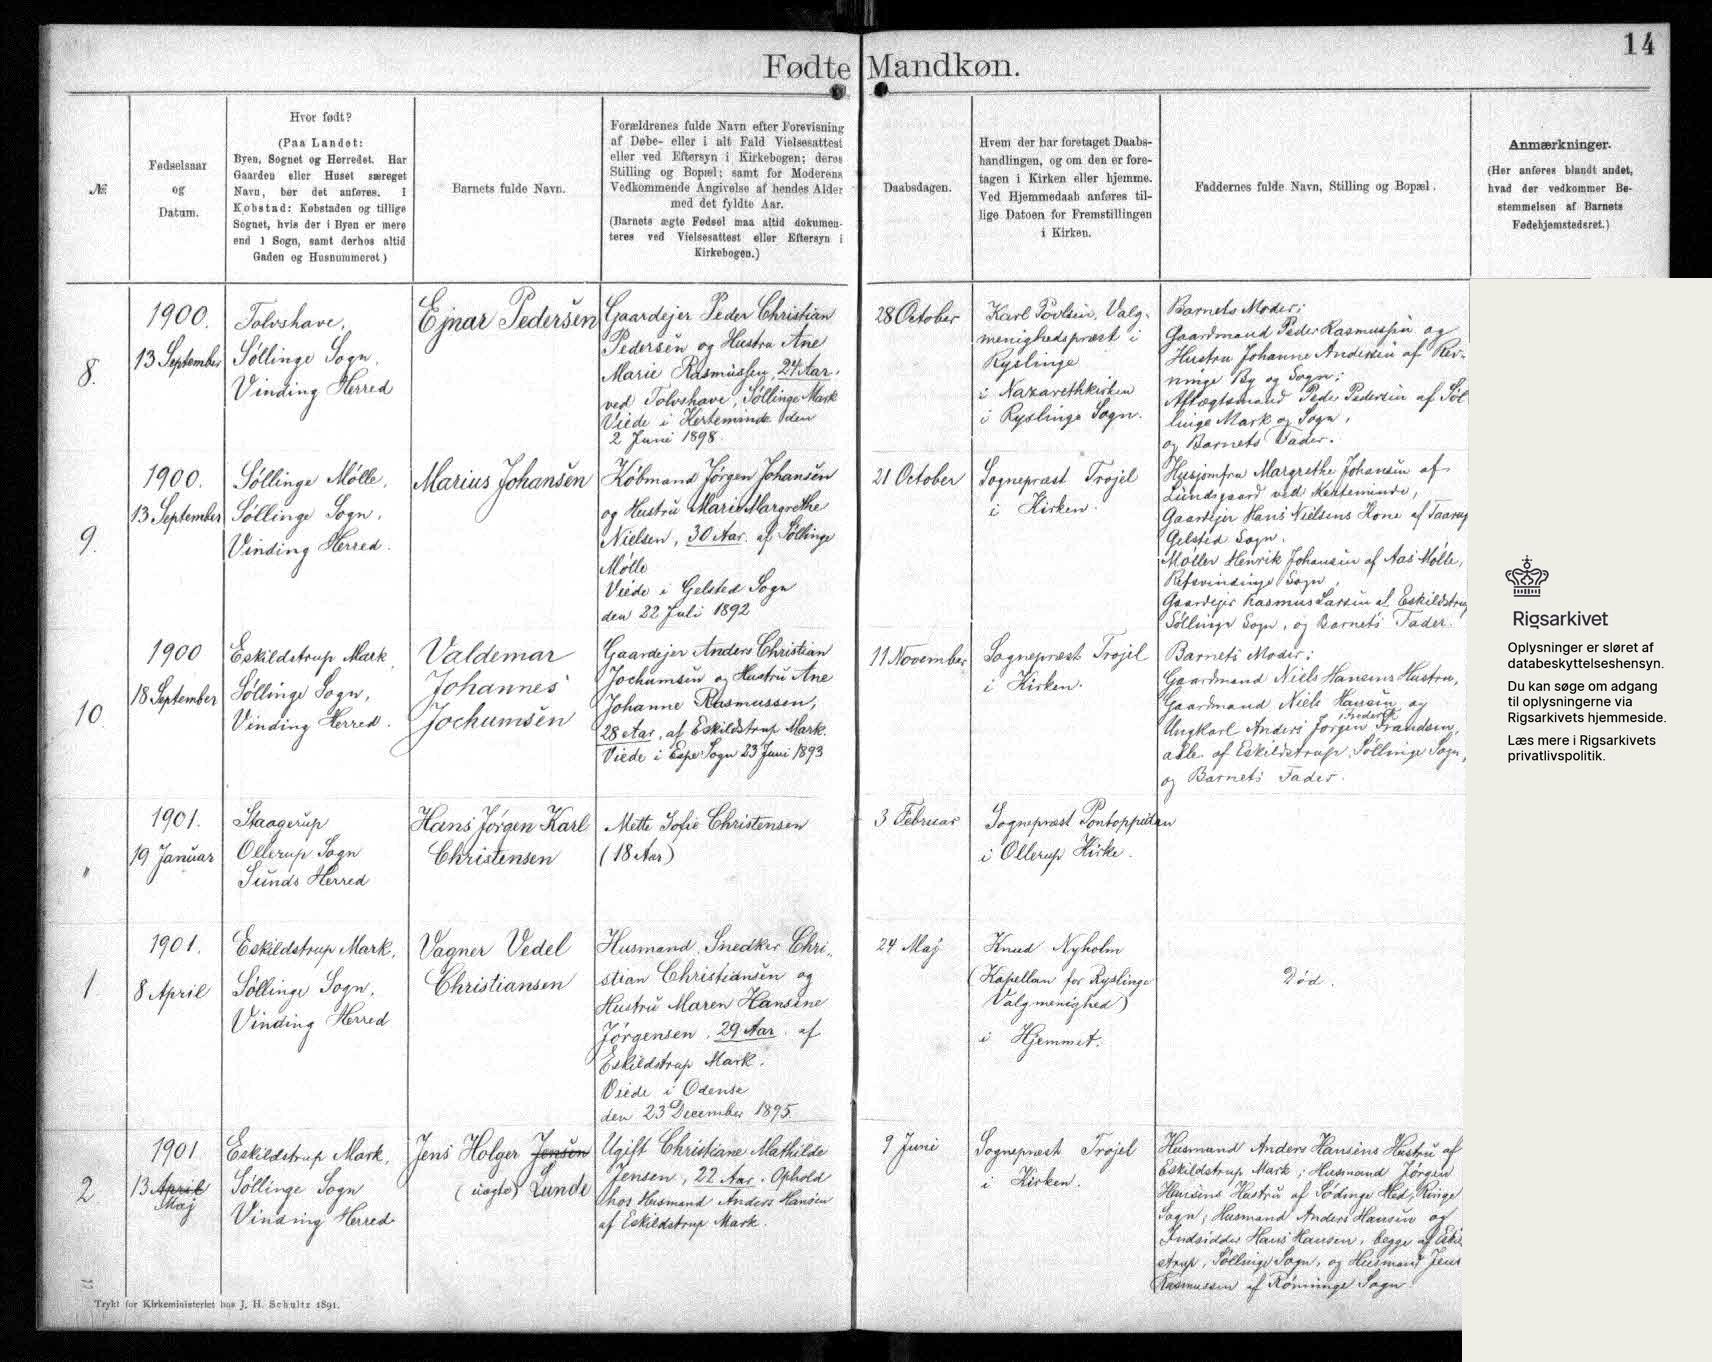 14
Fødte Mandkøn.
№
Fødselsaar
og
Datum.
Hvor født?
(Paa Landet:
Byen, Sognet og Herredet. Har
Gaarden eller Huset særeget
Navn, bør det anføres. I
Købstad: Købstaden og tillige
Sognet, hvis der i Byen er mere
end 1 Sogn, samt derhos altid
Gaden og Husnummeret.)
Barnets fulde Navn.
Forældrenes fulde Navn efter Forevisning
af Døbe- eller i alt Fald Vielsesattest
eller ved Eftersyn i Kirkebogen; deres
Stilling og Bopæl; samt for Moderens
Vedkommende Angivelse af hendes Alder
med det fyldte Aar.
(Barnets ægte Fødsel maa altid dokumen-
teres ved Vielsesattest eller Eftersyn i
Kirkebogen.)
Daabsdagen.
Hvem der har foretaget Daabs-
handlingen, og om den er fore-
tagen i Kirken eller hjemme.
Ved Hjemmedaab anføres til-
lige Datoen for Fremstillingen
i Kirken.
Faddernes fulde Navn, Stilling og Bopæl.
Anmærkninger.
(Her anføres blandt andet,
hvad der vedkommer Be-
stemmelsen af Barnets
Fødehjemstedsret.)
8.
1900.
13 September
Tolvshave,
Søllinge Sogn,
Vinding Herred
Ejnar Pedersen
Gaardejer Peder Christian
Pedersen og Hustru Ane
Marie Rasmussen, 24 Aar,
ved Tolvshave, Søllinge Mark
Viede i Kerteminde den
2 Juni 1898.
28 October
Karl Povlsen, Valg-
menighedspræst i
Ryslinge
i Nazarethkirken
i Ryslinge Sogn.
Barnets Moder;
Gaardmand Peder Rasmussen og
Hustru Johanne Andersen af Rev-
ninge By og Sogn;
Aftægtsmand Peder Pedersen af Søl
linge Mark og Sogn,
og Barnets Fader.
9.
1900.
13 September
Søllinge Mølle,
Søllinge Sogn,
Vinding Herred.
Marius Johansen
Købmand Jørgen Johansen
og Hustru Marie Margrethe
Nielsen, 30 Aar. af Søllinge
Mølle
Viede i Gelsted Sogn
den 22 Juli 1892
21 October
Sognepræst Trojel
i Kirken.
Husjomfru Margrethe Johansen af
Lundsgaard ved Kerteminde,
Gaardejer Hans Nielsens Kone af Taarup
Gelsted Sogn.
Møller Henrik Johansen af Aas Mølle,
Refsvindinge Sogn,
Gaardejer Rasmus Larsen af Eskildstrup
Søllinge Sogn, og Barnets Fader.
10.
1900
18 September
Eskildstrup Mark,
Søllinge Sogn,
Vinding Herred.
Valdemar
Johannes
Jochumsen
Gaardejer Anders Christian
Jochumsen og Hustru Ane
Johanne Rasmussen,
28 Aar, af Eskildstrup Mark.
Viede i Espe Sogn 23 Juni 1893
11 November
Sognepræst Trojel
i Kirken.
Barnets Moder;
Gaardmand Niels Hansens Hustru,
Gaardmand Niels Hansen og
Ungkarl Anders Jørgen Frandsen,
alle af Eskildstrup, Søllinge Sogn,
og Barnets Fader.
"
1901.
19 Januar
Staagerup
Ollerup Sogn
Sunds Herred
Hans Jørgen Karl
Christensen
Mette Sofie Christensen
(18 Aar)
3 Februar
Sognepræst Pontoppidan
i Ollerup Kirke.
1.
1901.
8 April
Eskildstrup Mark,
Søllinge Sogn,
Vinding Herred
Vagner Vedel
Christiansen
Husmand, Snedker Chri-
stian Christiansen og
Hustru Maren Hansine
Jørgensen, 29 Aar. af
Eskildstrup Mark.
Viede i Odense
den 23 December 1895.
24 Maj
Knud Nyholm
(Kapellan for Ryslinge
Valgmenighed)
i Hjemmet.
Død.
2
1901.
13 April
Maj
Eskildstrup Mark,
Søllinge Sogn
Vinding Herred
Jens Holger Jensen
(uægte) Lunde
Ugift Christiane Mathilde
Jensen, 22 Aar. Ophold
hos Husmand Anders Hansen
af Eskildstrup Mark.
9 Juni
Sognepræst Trojel
i Kirken.
Husmand Anders Hansens Hustru af
Eskildstrup Mark; Husmand Jørgen
Hansens Hustru af Sødinge Hed, Ringe
Sogn; Husmand Anders Hansen og
Indsidder Hans Hansen, begge af Eskil
strup, Søllinge Sogn, og Husmand Jens
Rasmussen af Rønninge Sogn.
Trykt for Kirkeministeriet hos J. H. Schultz 1891.
Rigsarkivet
Oplysninger er sløret af
databeskyttelseshensyn.
Du kan søge om adgang
til oplysningerne via
Rigsarkivets hjemmeside.
Læs mere i Rigsarkivets
privatlivspolitik.